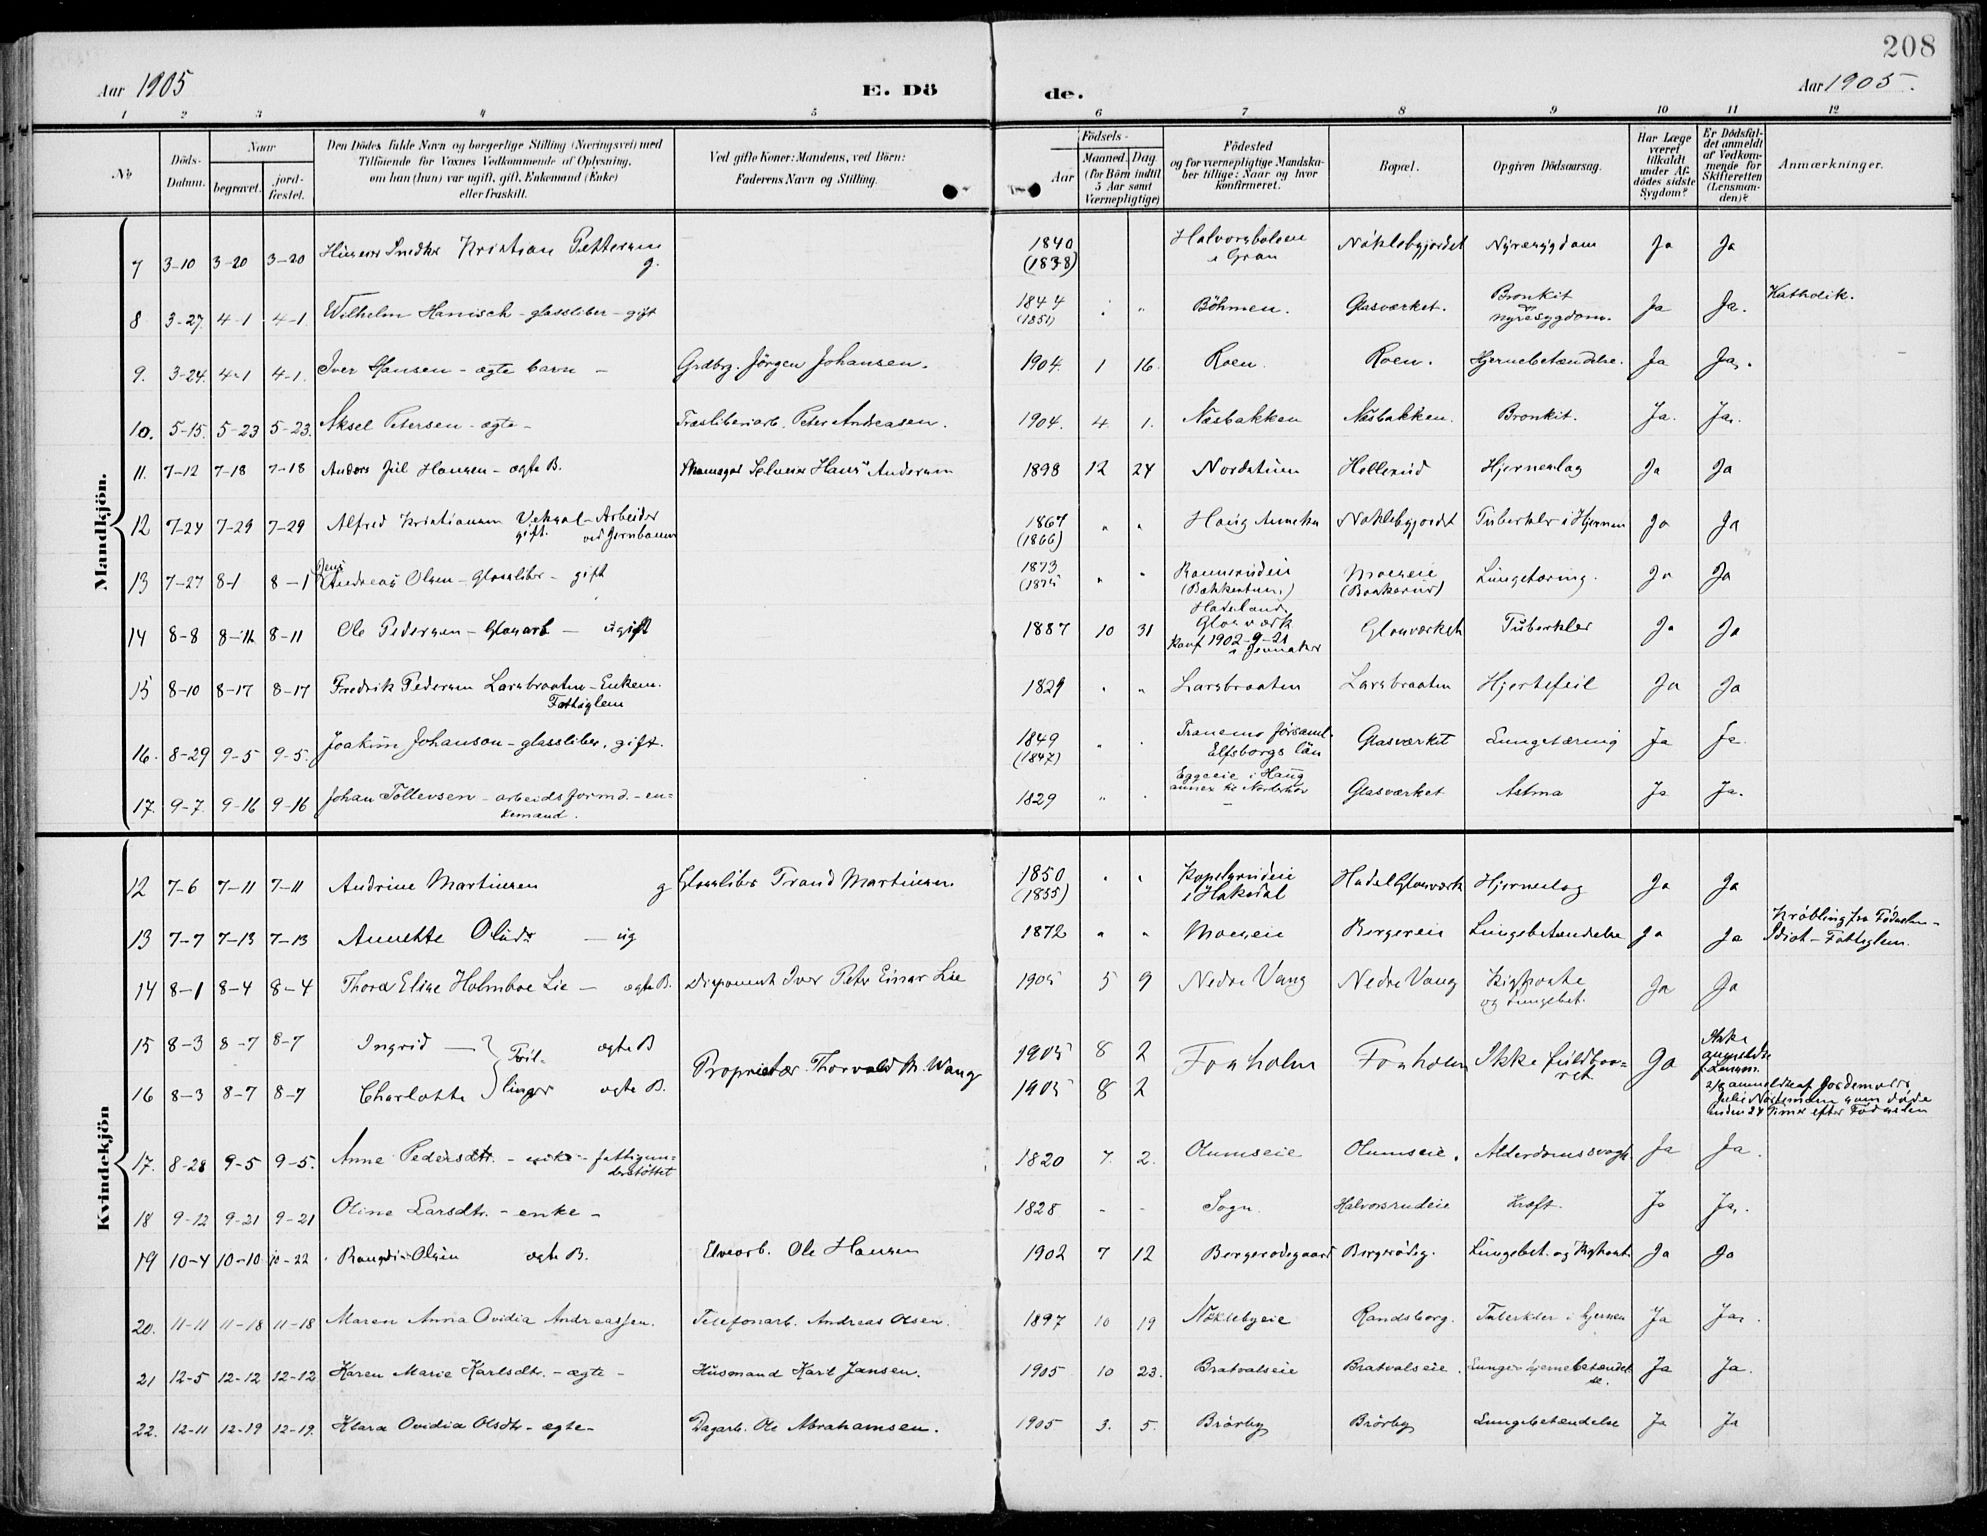 208
Aar 1905
E. Dö
de.
Aar 1905.
1 2 3 4 5 6 7 8 9 10 11 12
No
Döds-Datum.
Naar
begravet.
jord-fæstet.
Den Dödes fulde Navn og borgerlige Stilling (Næringsvei) med
Tilföiende for Voxnes Vedkommende af Oplysning,
om han (hun) var ugift, gift, Enkemand (Enke)
eller fraskilt.
Ved gifte Koner: Mandens, ved Börn:
Faderens Navn og Stilling.
Födsels-
Aar
Maaned. Dag
(for Börn indtil
5 Aar samt
Værnepligtige)
Födested
og for værnepligtige Mandska-
ber tillige: Naar og hvor
konfirmeret.
Bopæl.
Opgiven Dödsaarsag.
Har Læge
været
tilkaldt
under Af-
dödes sidste
Sygdom?
Er Dödsfal-
det anmeldt
af Vedkom-
mende for
Skifteretten
(Lensman-
den)?
Anmærkninger.
Mandkjön.
7 3-10 3-20 3-20 Snedker Kristian Pettersen g. 1840 (1838) Halvorsbölen i Gran Nöklebyjordet Nyresygdom Ja Ja
8 3-27. 4-1 4-1. Wilhelm Hanisch - glassliber - gift 1844 (1851) Böhmen. Glasværket. Bronkit & nyresygdom. Ja Ja. Katholik.
9. 3-24. 4-1 4-1. Iver Hansen - ægte barn - Grdbr. Jörgen Johansen. 1904. 1 16. Roen. Roen. Hjernebetændelse. Ja Ja.
10. 5-15. 5-23 5-23. Aksel Petersen - ægte - Træsliberiarb. Peter Andreasen. 1904. 4. 1. Næsbakken Næsbakken. Bronkit. Ja. Ja.
11. 7-12 7-18 7-18 Anders Juil Hansen - ægte B. Hans Andersen 1898 12 24 Nordstuen Hellerud Hjerneslag Ja Ja
12 7-24 7-29 7-29 Alfred Kristiansen - Arbeider ved Jernbanen gift. 1867 (1866) " " Haug Nöklebyjordet Tuberkler i Hjernen Ja Ja
13 7-27 8-1 8-1 Jens Andreas Olsen - Glassliber - gift 1873 (1875 " " (Bækkestuen.) Moeseie (Braakerud) Lungetæring. Ja Ja
14 8-8 8-12 8-11 Ole Pedersen - Glasarb - ugift 1887 10 31 Hadelands Glasværk Konf 1902-9-21 i Jevnaker Glasværket Tuberkler Ja Ja
15 8-10 8-17 8-17 Fredrik Pedersen Larsbraaten - Enkem. Fattiglem 1829 " " Larsbraaten Larsbraaten Hjertefeil Ja Ja
16. 8-29 9-5 9-5. Joakim Johanson - glassliber, gift. 1849 (1847) " . Tranems församl. Elfsborgs län Glasværket Lungetæring Ja Ja.
17. 9-7. 9-16 9-16 Johan Tollevsen - arbeidsformd. - en-
kemand. 1829 " . Eggeeie i Haug annex til Norderhov Glasværket Astma Ja Ja.
Kvindekjön
12 7-6 7-11 7-11 Andrine Martinsen g Glassliber Trand Martinsen 1850 (1855) " " i Hakedal Hadel Glasværk Hjerneslag Ja Ja
13 7-7 7-13 7-13 Annette Olsdr - ug 1872 " " Moeseie Bergereie Lungebetændelse Ja Ja Kröbling fra Födselen -
Idiot - Fattiglem.
14 8-1 8-4 8-4 Thora Elise Holmboe Lie - ægte B. Disponent Iver Peter Einar Lie 1905 5 9 Nedre Vang Nedre Vang Kighoste og Lungebet. Ja Ja
15 8-3 8-7 8-7 Ingrid - } Tvil- ægte B Proprietær Thorvald M. Wang 1905 8 2 Fonholm Fonholm Ikke fuldbaa-
ret Ja Ikke anmeldte
16 8-3 8-7 8-7 Charlotte linger ægte B. 1905 8 2 anmeldte af Jordemoder
som döde inden 24 Timer efter Födselen
17. 8-28 9-5 9-5. Anne Pedersdtr. - enke - fattigun-
derstöttet 1820 7. 2. Olumseie Olumseie. Alderdomssvagh. Ja Ja.
18 9-12 9-21 9-21 Oline Larsdtr. - enke - 1828 - - Sogn. Halvorsrudeie Kræft. Ja Ja.
19 10-4 10-10 10-22 Rangdi Olsen ægte B. Elvearb. Ole Hansen 1902 7 12 Bergerodegaard Bergerödeg. Lungebet. og Kighoste Ja Ja
20. 11-11 11-18 11-18 Maren Anna Ovidia Andreassen. Telefonarb. Andreas Olsen. 1897 10 19 Nöklebyeie Randsborg. Tuberkler i hjernen Ja Ja.
21 12-5 12-12 12-12 Karen Marie Karlsdtr. - ægte - Husmand Karl Jansen. 1905 10 23. Bratvalseie Bratvalseie. Lunge- hjernebetændel-
se. Ja Ja.
22. 12-11 12-19 12-19. Klara Ovidia Olsdtr - ægte - Dagarb. Ole Abrahamsen. 1905 3. 5. Brörby Brörby Lungebetændelse Ja Ja